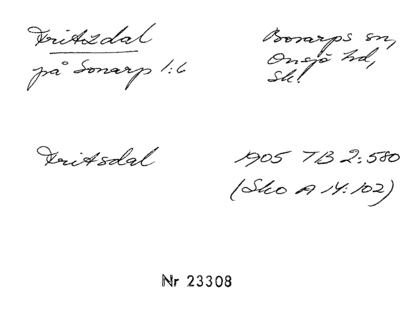 Fritzdal
på Sonarp 1:6
Bosarps sn,
Onsjö hd,
Sk.
Fritsdal
1905 TB 2:580
(Sko A 14:102)
Nr 23308